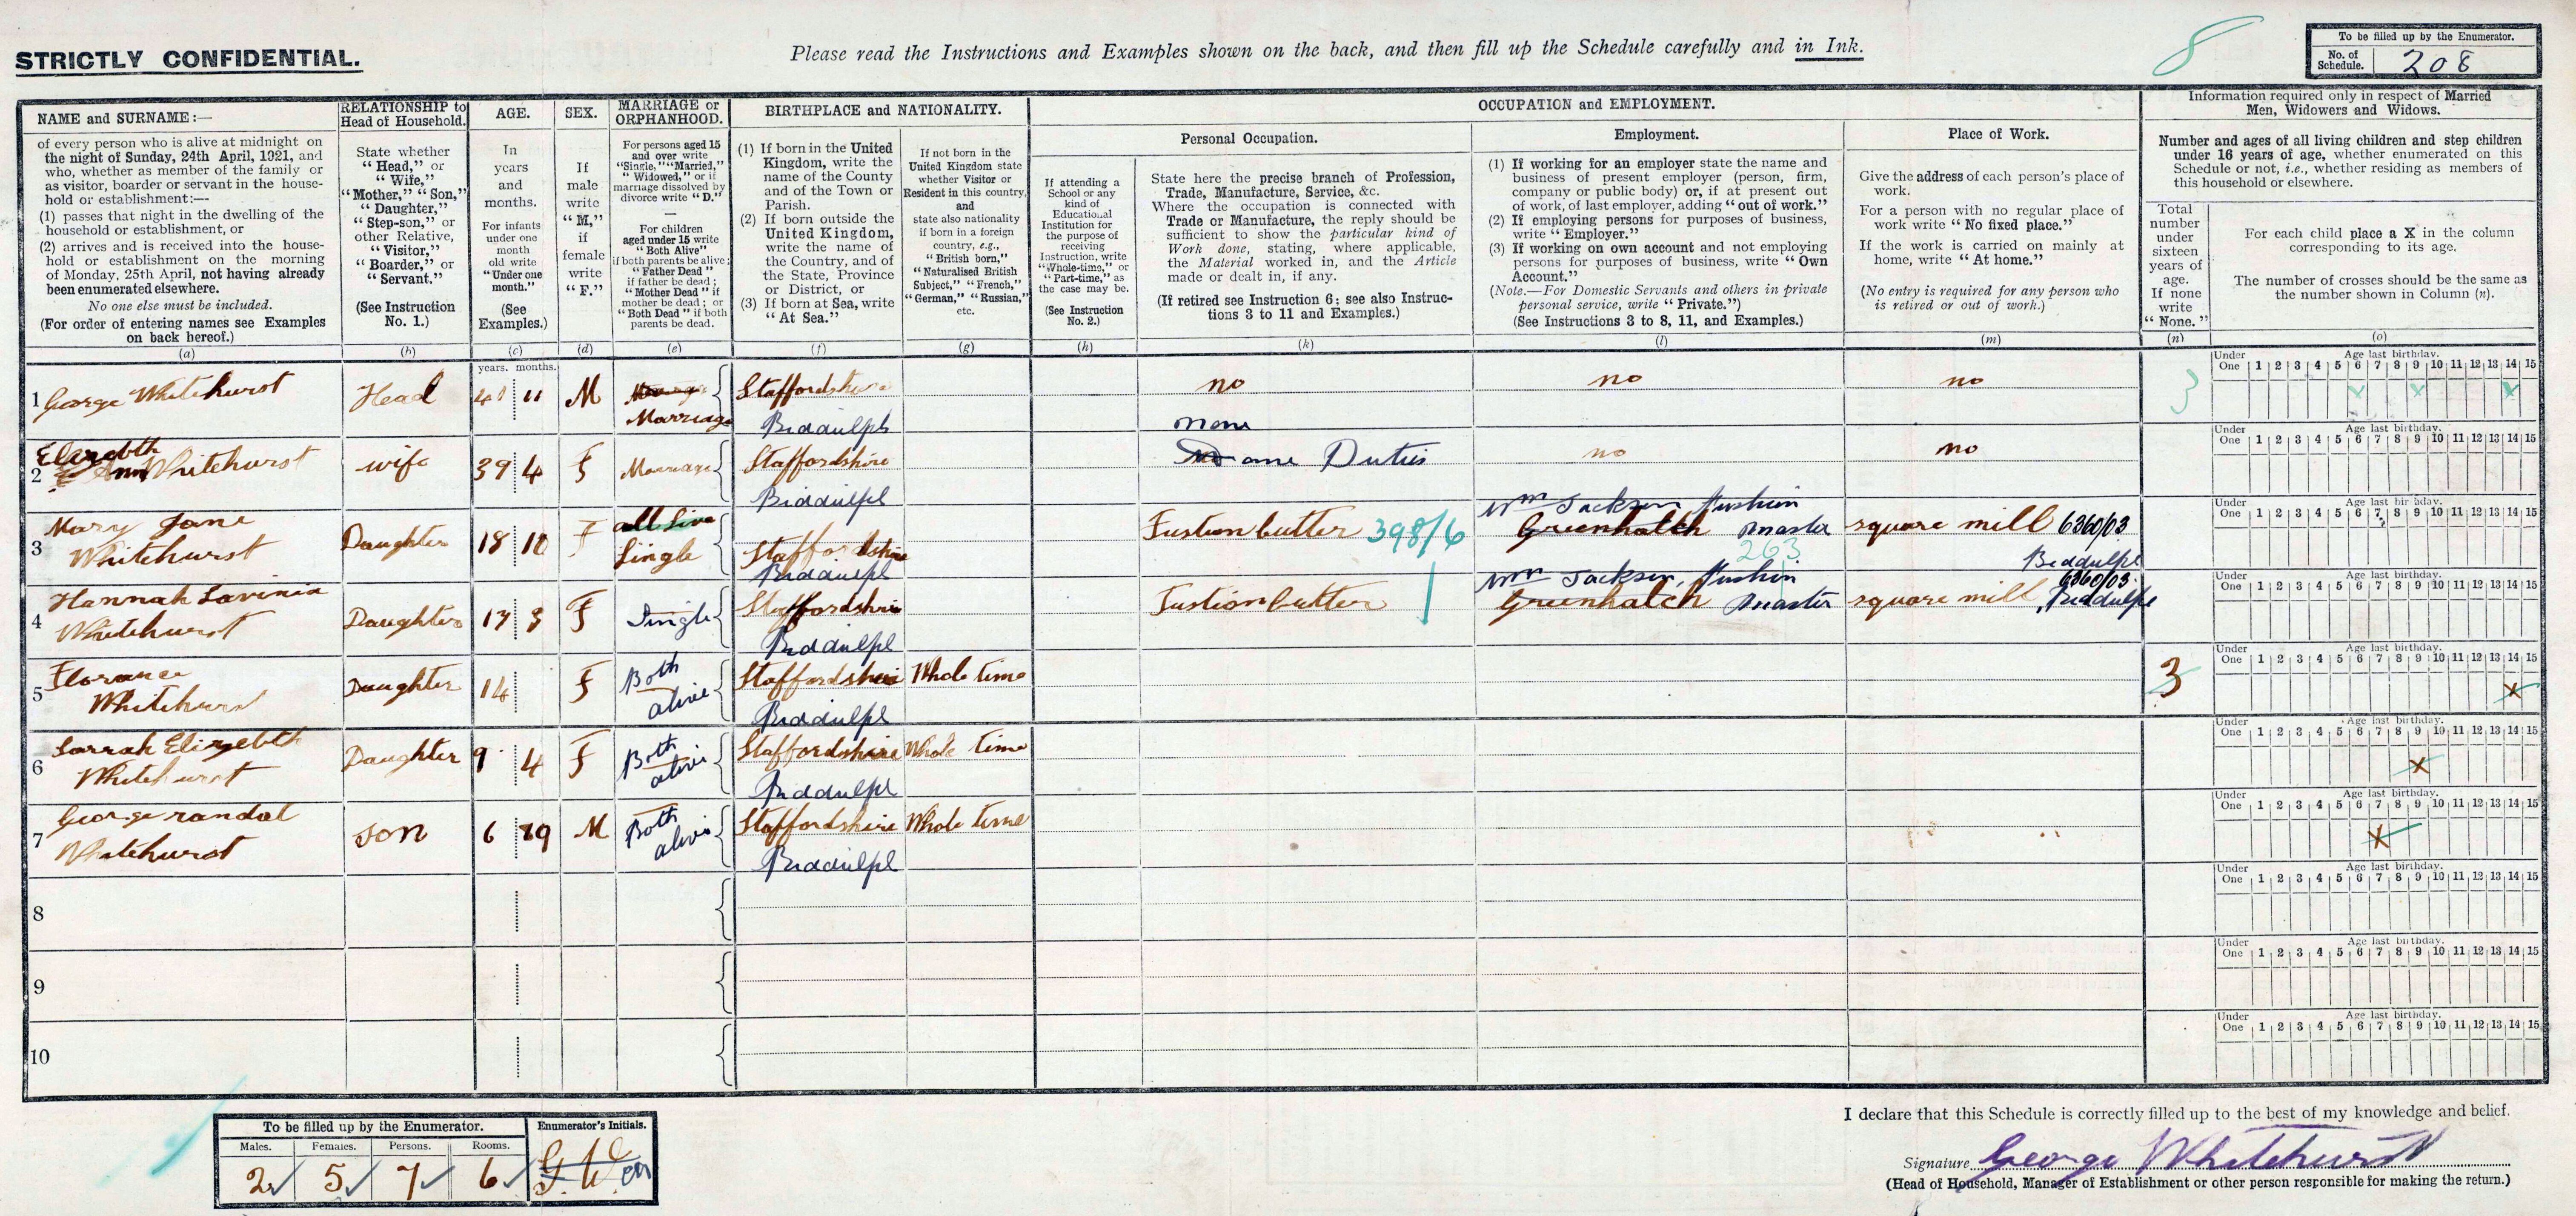 STRICTLY CONFIDENTIAL.
Please read the Instructions and Examples shown on the back, and then fill up the Schedule carefully and in Ink.
8
To be filled up by the Enumerator.
No. of Schedule.
208
NAME and SURNAME:—
of every person who is alive at midnight on
the night of Sunday, 24th April, 1921, and
who, whether as member of the family or
as visitor, boarder or servant in the house-
hold or establishment:—
(1) passes that night in the dwelling of the
household or establishment, or
(2) arrives and is received into the house-
hold or establishment on the morning
of Monday, 25th April, not having already
been enumerated elsewhere.
No one else must be included.
(For order of entering names see Examples
on back hereof.)
(a)
RELATIONSHIP to
Head of Household.
State whether
"Head," or
"Wife,"
"Mother," "Son,"
"Daughter,"
"Step-son," or
other Relative,
"Visitor,"
"Boarder," or
"Servant."
(See Instruction
No. 1.)
(b)
AGE.
In
years
and
months.
For infants
under one
month
old write
"Under one
month."
(See
Examples.)
(c)
years. months.
SEX.
If
male
write
"M,"
if
female
write
"F."
(d)
MARRIAGE or
ORPHANHOOD.
For persons aged 15
and over write
"Single," "Married,"
"Widowed," or if
marriage dissolved by
divorce write "D."
—
For children
aged under 15 write
"Both Alive"
if both parents be alive;
"Father Dead"
if father be dead;
"Mother Dead" if
mother be dead; or
"Both Dead" if both
parents be dead.
(e)
BIRTHPLACE and NATIONALITY.
(1) If born in the United
Kingdom, write the
name of the County
and of the Town or
Parish.
(2) If born outside the
United Kingdom,
write the name of
the Country, and of
the State, Province
or District, or
(3) If born at Sea, write
"At Sea."
(f)
If not born in the
United Kingdom state
whether Visitor or
Resident in this country,
and
state also nationality
if born in a foreign
country, e.g.,
"British born,"
"Naturalised British
Subject," "French,"
"German," "Russian,"
etc.
(g)
OCCUPATION and EMPLOYMENT.
Personal Occupation.
If attending a
School or any
kind of
Educational
Institution for
the purpose of
receiving
Instruction, write
"Whole-time," or
"Part-time," as
the case may be.
(See Instruction
No. 2.)
(h)
State here the precise branch of Profession,
Trade, Manufacture, Service, &c.
Where the occupation is connected with
Trade or Manufacture, the reply should be
sufficient to show the particular kind of
Work done, stating, where applicable,
the Material worked in, and the Article
made or dealt in, if any.
(If retired see Instruction 6; see also Instruc-
tions 3 to 11 and Examples.)
(k)
Employment.
(1) If working for an employer state the name and
business of present employer (person, firm,
company or public body) or, if at present out
of work, of last employer, adding "out of work."
(2) If employing persons for purposes of business,
write "Employer."
(3) If working on own account and not employing
persons for purposes of business, write "Own
Account."
(Note.—For Domestic Servants and others in private
personal service, write "Private.")
(See Instructions 3 to 8, 11, and Examples.)
(l)
Place of Work.
Give the address of each person's place of
work.
For a person with no regular place of
work write "No fixed place."
If the work is carried on mainly at
home, write "At home."
(No entry is required for any person who
is retired or out of work.)
(m)
Information required only in respect of Married
Men, Widowers and Widows.
Number and ages of all living children and step children
under 16 years of age, whether enumerated on this
Schedule or not, i.e., whether residing as members of
this household or elsewhere.
Total
number
under
sixteen
years of
age.
If none
write
"None."
(n)
For each child place a X in the column
corresponding to its age.
The number of crosses should be the same as
the number shown in Column (n).
(o)
Under One Age last birthday. 1 2 3 4 5 6 7 8 9 10 11 12 13 14 15
1 George Whitehurst Head 41 11 M Marriage Staffordshire no no no 3 x x x
Marriage Biddulph none
Under One Age last birthday. 1 2 3 4 5 6 7 8 9 10 11 12 13 14 15
2 Elizebth Ann Whitehurst wife 39 4 F Marriage Staffordshire Duties no no
Biddulph
Under One Age last birthday. 1 2 3 4 5 6 7 8 9 10 11 12 13 14 15
3 Mary Jane Whitehurst Daughter 18 10 F all live Single Staffordshire Fustion Cutter 398/6 Wm Jackson, Fushin Greenhatch master 263 square mill 6360/03
Biddulph Biddulph
Under One Age last birthday. 1 2 3 4 5 6 7 8 9 10 11 12 13 14 15
4 Hannah Lavinia Whitehurst Daughter 17 3 F Single Staffordshire Fustion Cutter Wm Jackson, Fushin Greenhatch master square mill 6360/03 Biddulph
Biddulph
Under One Age last birthday. 1 2 3 4 5 6 7 8 9 10 11 12 13 14 15
5 Florance Whitehurst Daughter 14 F Both alive Staffordshire Whole time 3 x
Biddulph
Under One Age last birthday. 1 2 3 4 5 6 7 8 9 10 11 12 13 14 15
6 Sarrah Elizebth Whitehurst Daughter 9 4 F Both alive Staffordshire Whole time x
Biddulph
Under One Age last birthday. 1 2 3 4 5 6 7 8 9 10 11 12 13 14 15
7 George randal Whitehurst Son 6 9 M Both alive Staffordshire Whole time x
Biddulph
Under One Age last birthday. 1 2 3 4 5 6 7 8 9 10 11 12 13 14 15
8
Under One Age last birthday. 1 2 3 4 5 6 7 8 9 10 11 12 13 14 15
9
Under One Age last birthday. 1 2 3 4 5 6 7 8 9 10 11 12 13 14 15
10
To be filled up by the Enumerator.
Males. Females. Persons. Rooms.
2 5 7 6
Enumerator's Initials.
I declare that this Schedule is correctly filled up to the best of my knowledge and belief.
Signature George Whitehurst
(Head of Household, Manager of Establishment or other person responsible for making the return.)